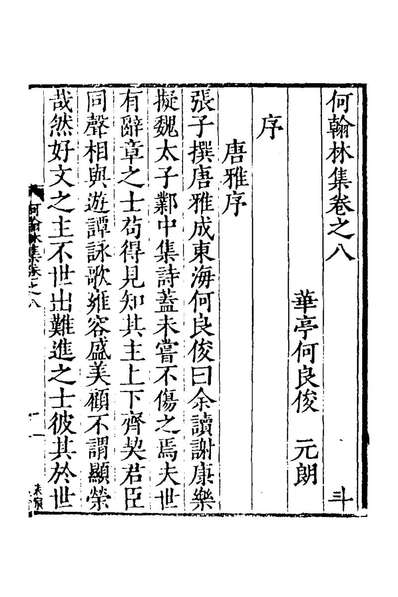 何翰林集卷之八
華亭何良俊 元朗
序
唐雅序
張子撰唐雅成東海何良俊曰余讀謝康樂
擬魏太子鄴中集詩蓋未嘗不傷之焉夫世
有辭章之士苟得見知其主上下齊契君臣
同聲相與遊譚詠歌雍容盛美顧不謂顯榮
哉然好文之主不世出難進之士彼其於世
何翰林集卷之八